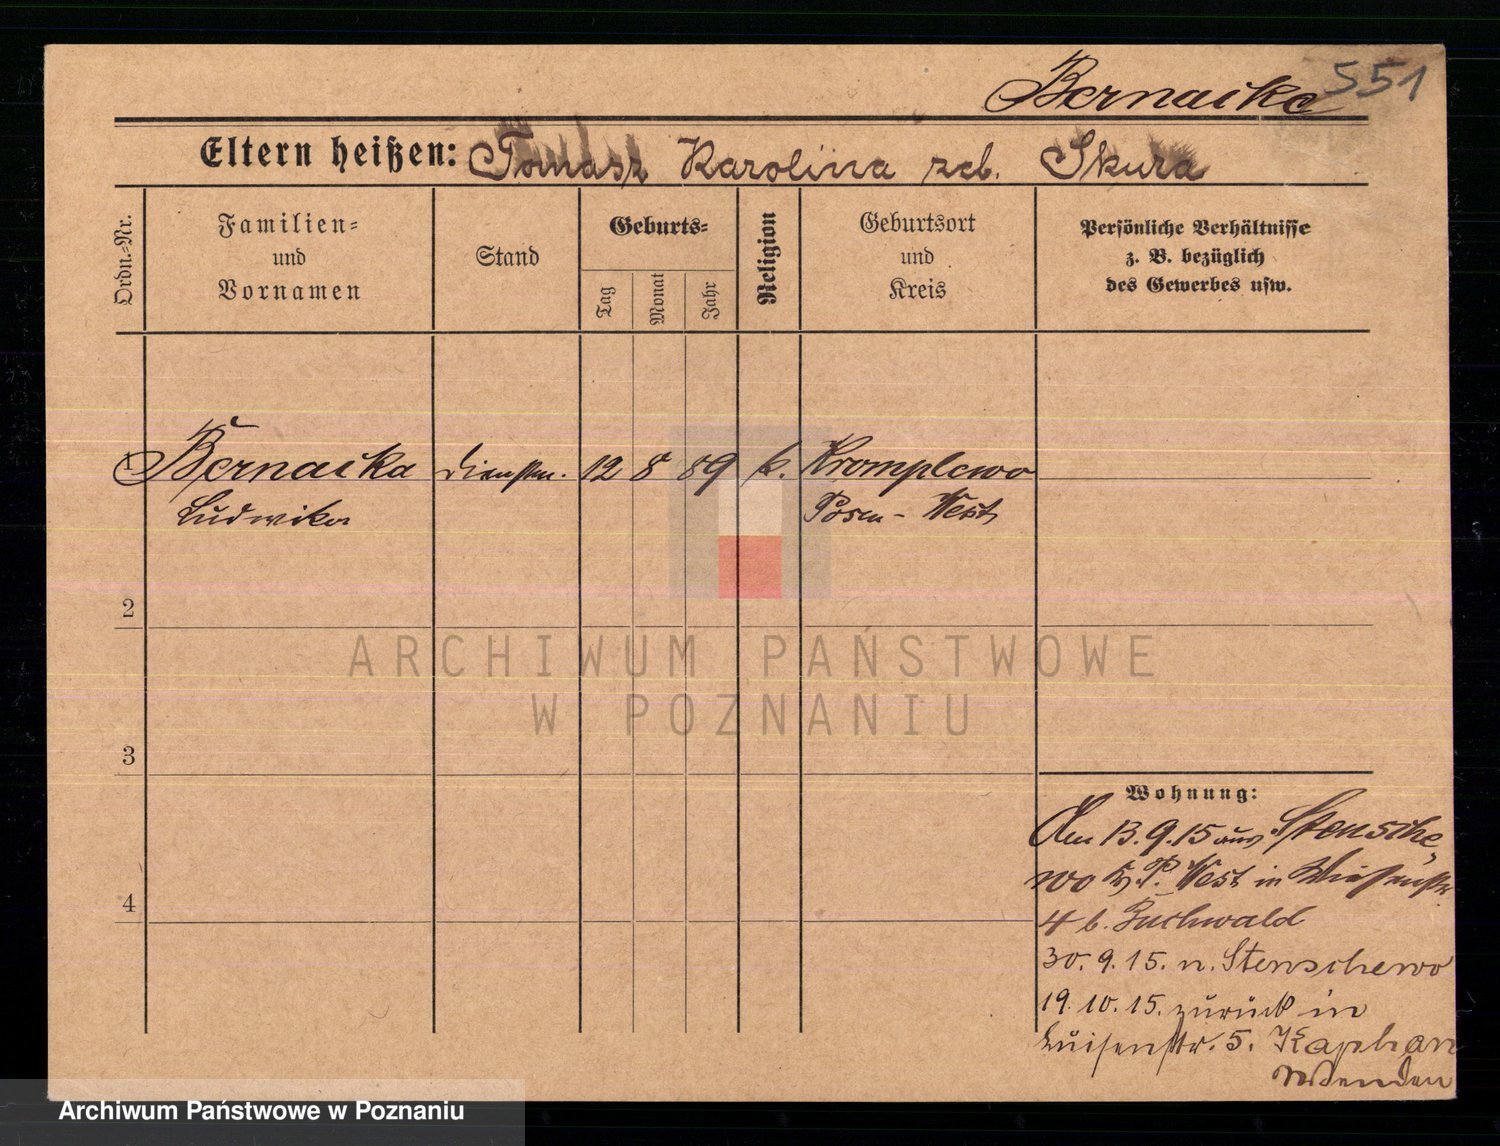 Bernacka 551
Eltern heißen: Tomasz Karolina Skura
Ordn.-Nr.
Familien-
und
Vornamen
Stand
Geburts-
Tag
Monat
Jahr
Religion
Geburtsort
und
Kreis
Persönliche Verhältnisse
z. B. bezüglich
des Gewerbes usw.
Bernacka 12 8 89 k. Kromplewo
Ludwika Posen - West
2
3
4
Wohnung:
Am 13.9.15 aus Stensche
wo Kr. P. West in
4 b. Buchwald
30.9.15. n. Stenschewo
19.10.15. zurück in
Luisenstr. 5. Kaphan
ARCHIWUM PAŃSTWOWE
W POZNANIU
Archiwum Państwowe w Poznaniu